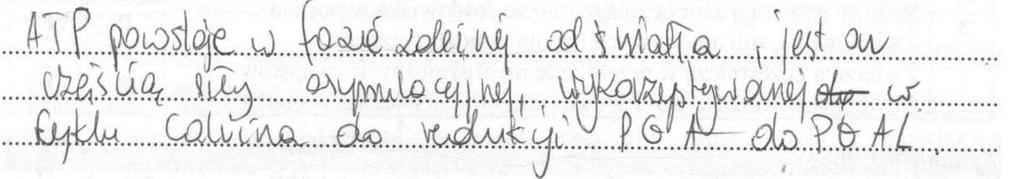 ATP powstaje w fazie zależnej od światła i jest on
częścią siły asymilacyjnej, wykorzystywanej w
cyklu Calvina do redukcji PGA do PGAL